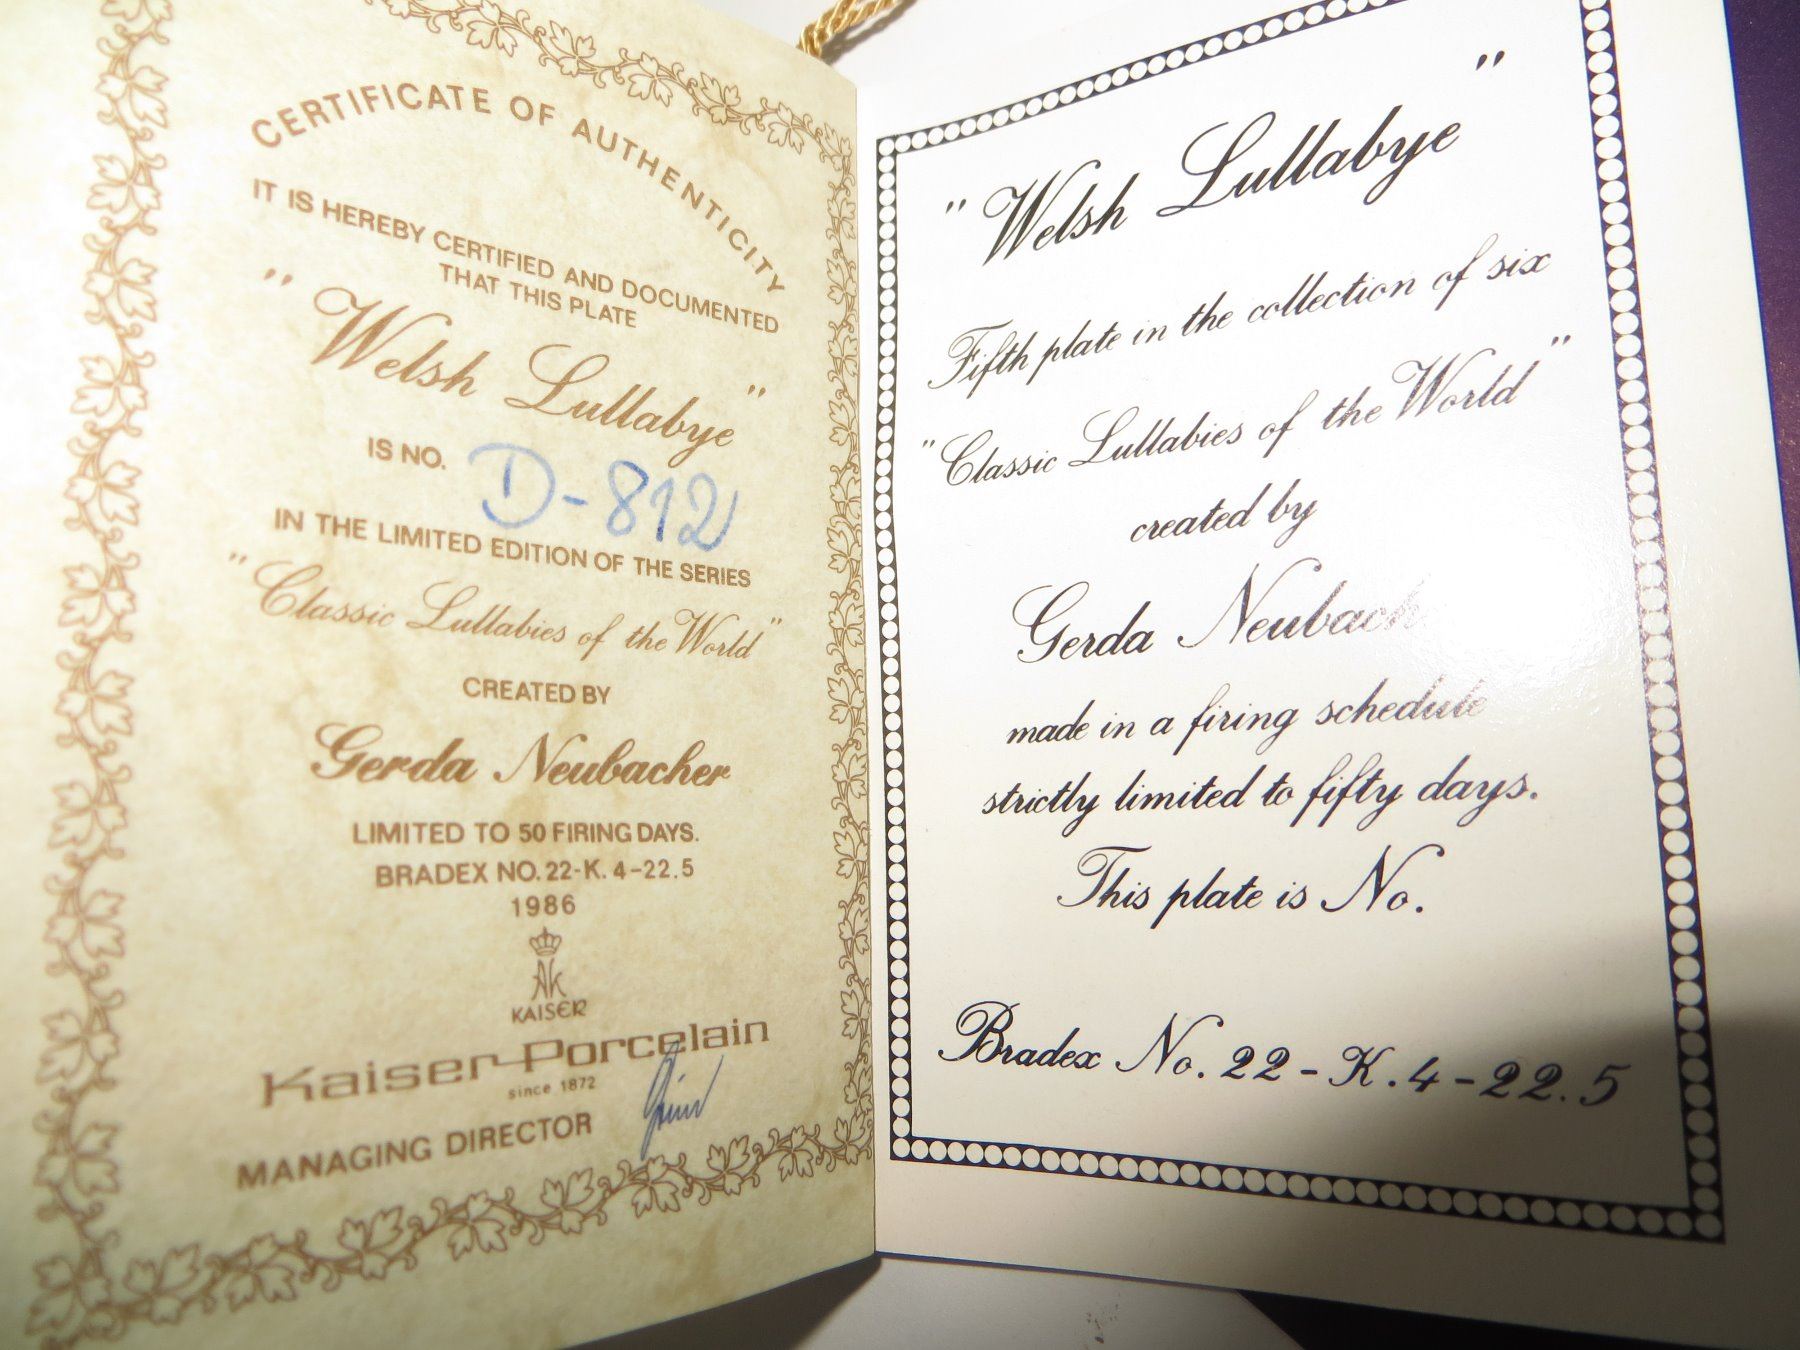 CERTIFICATE OF AUTHENTICITY
IT IS HEREBY CERTIFIED AND DOCUMENTED
THAT THIS PLATE
"Welsh Lullabye"
IS NO. D-812
IN THE LIMITED EDITION OF THE SERIES
"Classic Lullabies of the World"
CREATED BY
Gerda Neubacher
LIMITED TO 50 FIRING DAYS.
BRADEX NO. 22-K. 4-22.5
1986
AK
KAISER
Kaiser-Porcelain
since 1872
MANAGING DIRECTOR
"Welsh Lullabye"
Fifth plate in the collection of six
"Classic Lullabies of the World"
created by
Gerda Neubach
made in a firing schedule
strictly limited to fifty days.
This plate is No.
Bradex No. 22-K.4-22.5